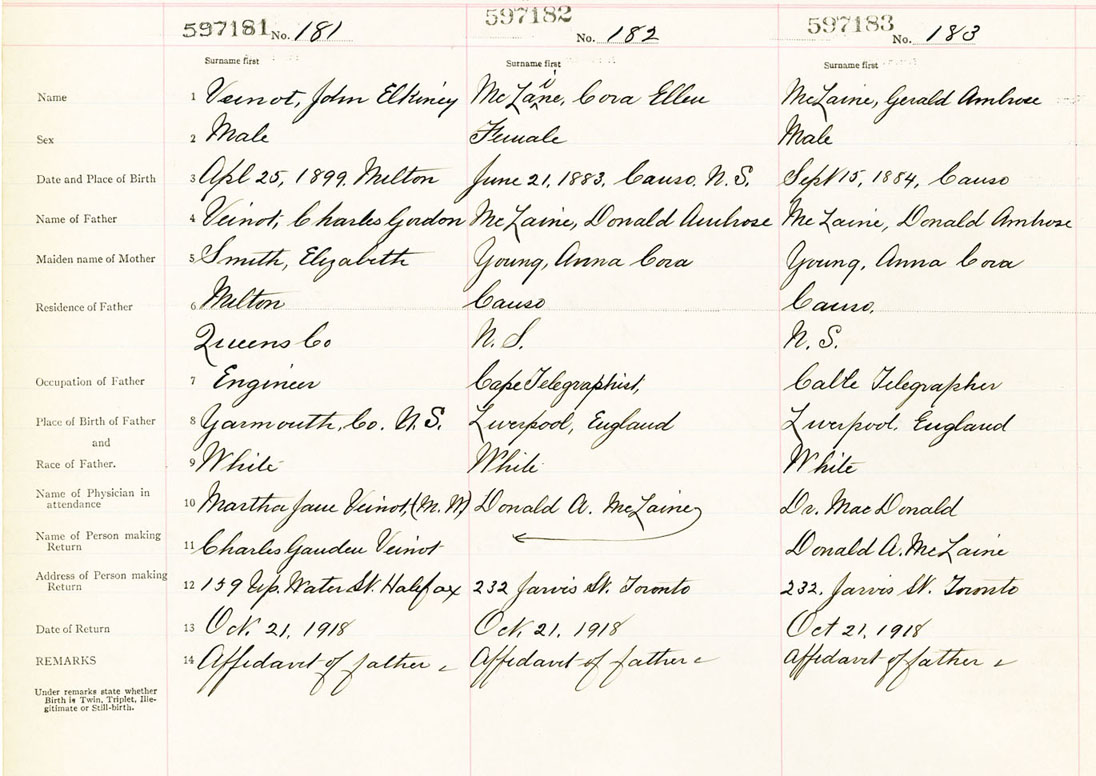 597181 No. 181 597182 No. 182 597183 No. 183
Surname first Surname first Surname first
i
Name 1 Veinot, John Elkiney McLane, Cora Ellen McLaine, Gerald Ambrose
Sex 2 Male Female Male
Date and Place of Birth 3 Apl 25, 1899. Milton June 21, 1883, Canso, N.S. Sept 15, 1884, Canso
Name of Father 4 Veinot, Charles Gordon McLaine, Donald Ambrose McLaine, Donald Ambrose
Maiden name of Mother 5 Smith, Elizabeth Young, Anna Cora Young, Anna Cora
Residence of Father 6 Milton Canso Canso,
Queens Co N. S. N. S.
Occupation of Father 7 Engineer Cape Telegraphist, Calte Telegrapher
Place of Birth of Father 8 Yarmouth, Co. N.S. Liverpool, England Liverpool, England
and
Race of Father. 9 White White White
Name of Physician in
attendance 10 Martha Jane Veinot, (M.W) Donald A. McLaine Dr. MacDonald
Name of Person making
Return 11 Charles Gauden Veinot Donald A. McLaine
Address of Person making
Return 12 159 Up. Water St. Halifax 232 Jarvis St. Toronto 232. Jarvis St. Toronto
Date of Return 13 Oct. 21, 1918 Oct. 21, 1918 Oct 21, 1918
REMARKS 14 Affidavit of father Affidavit of father Affidavit of father
Under remarks state whether
Birth is Twin, Triplet, Ille-
gitimate or Still-birth.